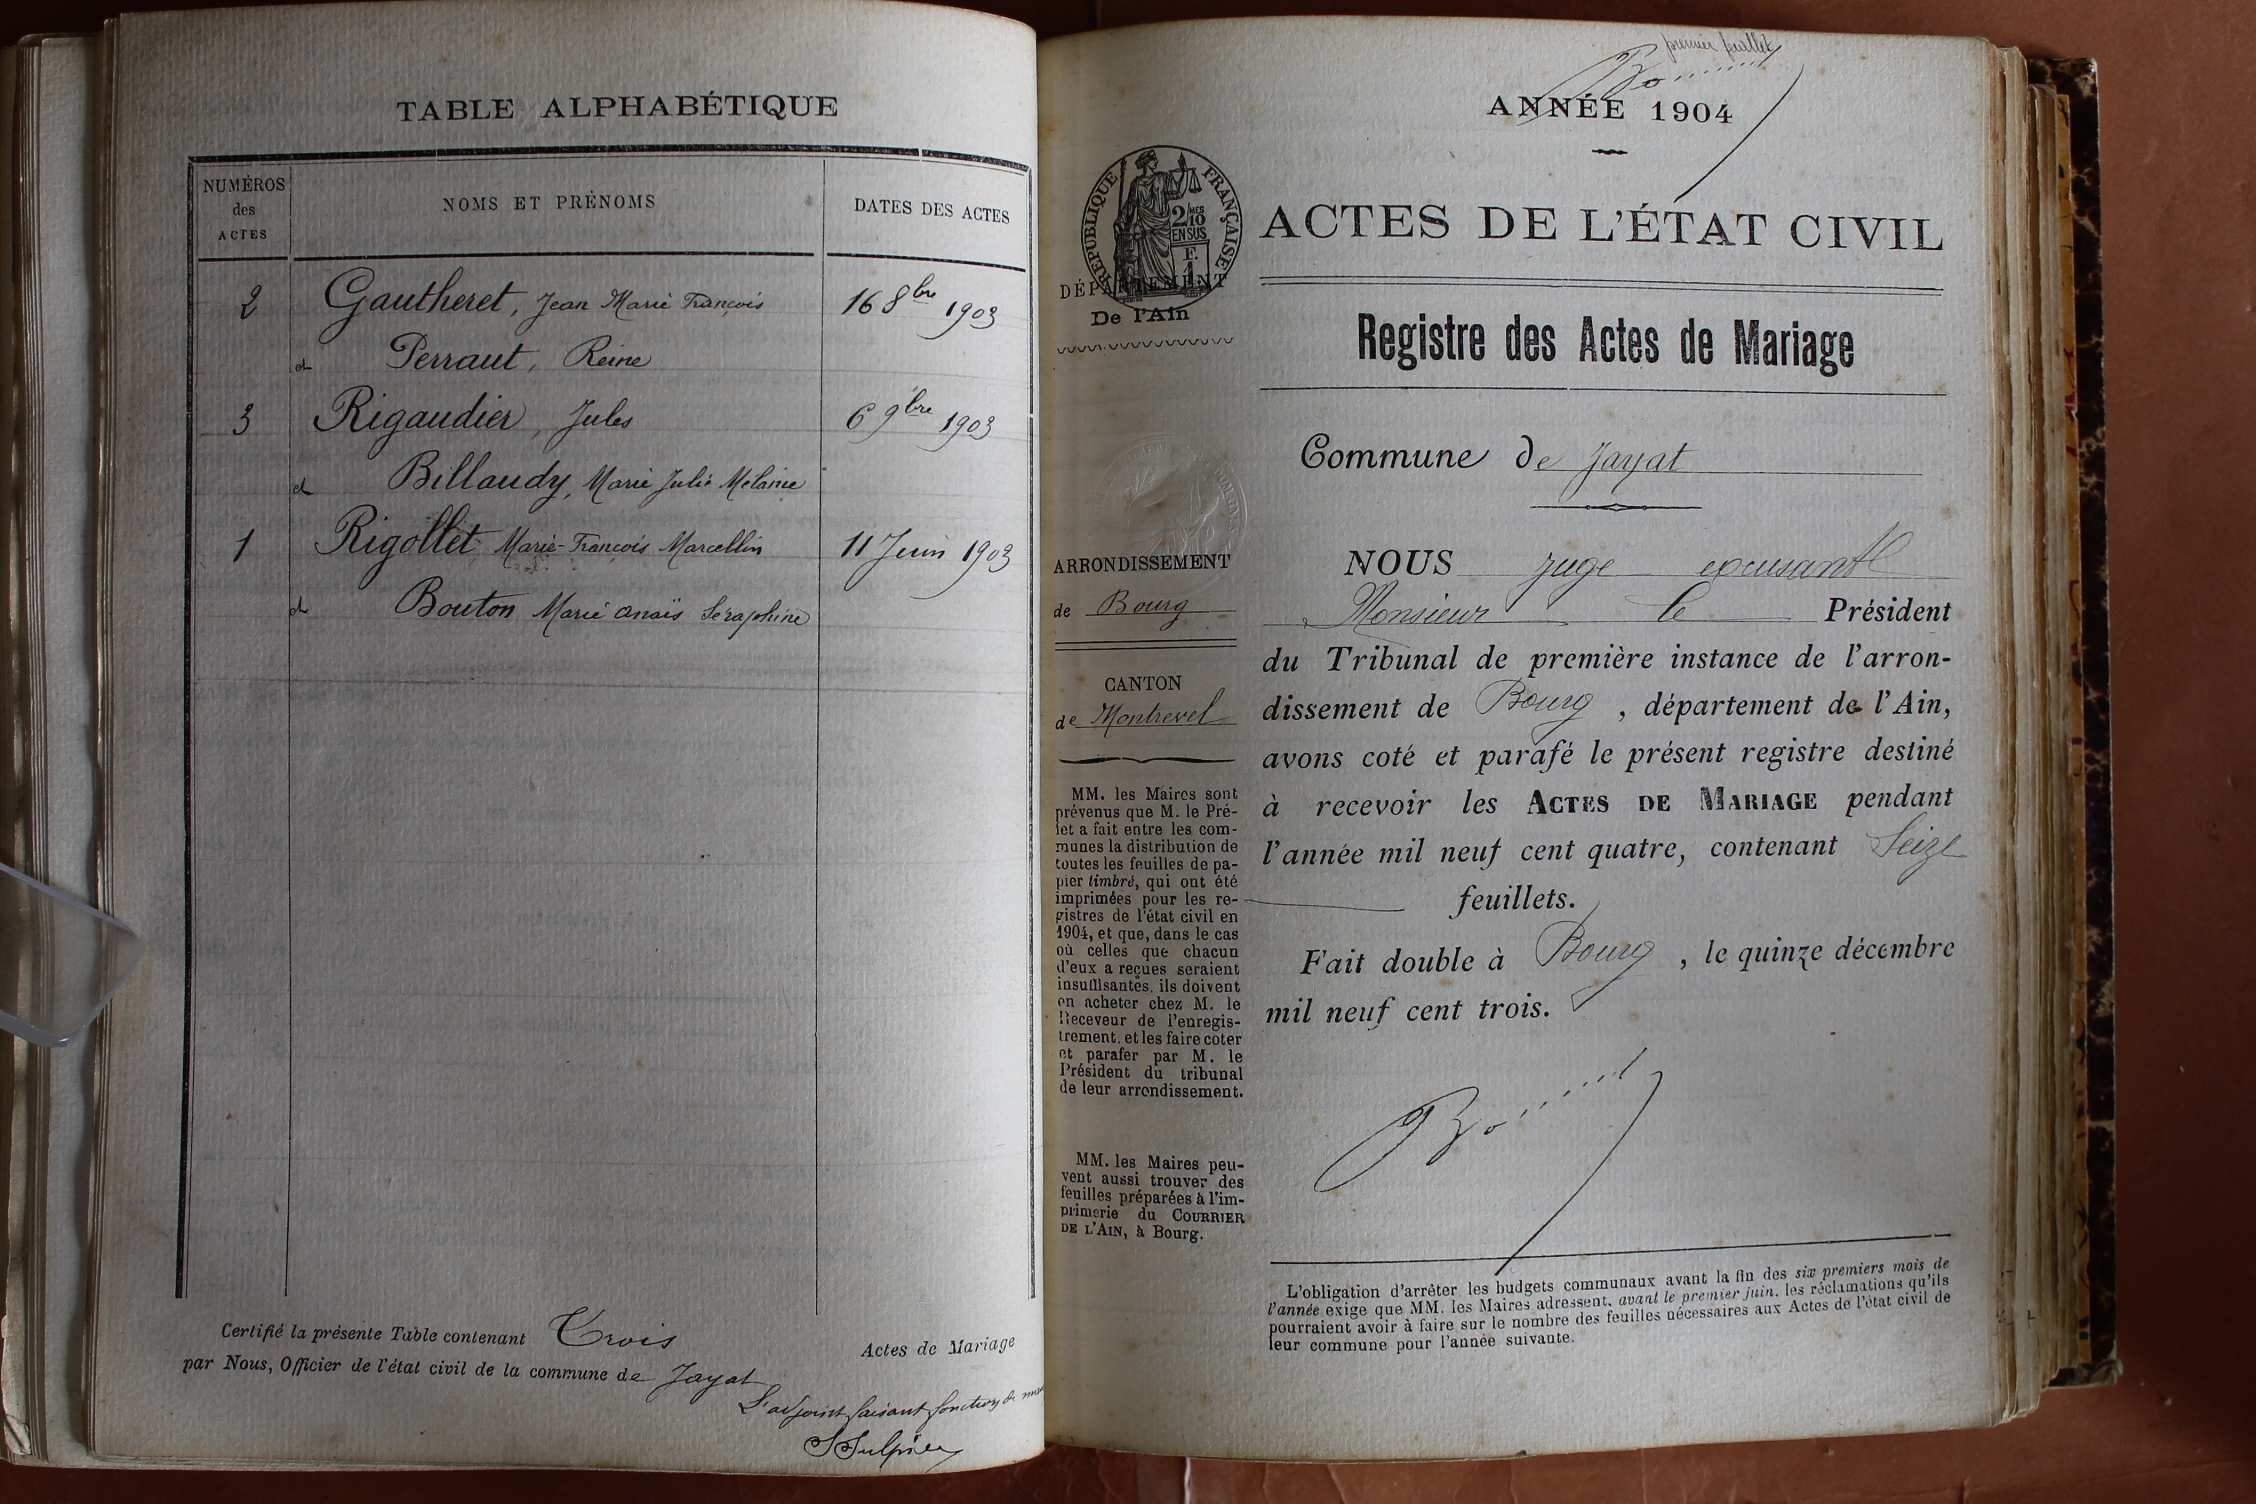 TABLE ALPHABÉTIQUE
NUMÉROS
des
ACTES
NOMS ET PRÉNOMS
DATES DES ACTES
2 Gautheret, Jean Marie François 16 8bre 1903
et Perraut, Reine
3 Rigaudier, Jules 6 9bre 1903
et Billaudy, Marie Julie Mélanie
1 Rigollet, Marie-François Marcellin 11 Juin 1903
et Bouton Marie Anaïs Séraphine
Certifié la présente Table contenant Trois Actes de Mariage
par Nous, Officier de l'état civil de la commune de Jayat
L'adjoint faisant fonctions de
premier feuillet
ANNÉE 1904
RÉPUBLIQUE FRANÇAISE
2/10 MES
EN SUS
F.
1
DÉPARTEMENT
De l'Ain
ARRONDISSEMENT
de Bourg
CANTON
de Montrevel
MM. les Maires sont
prévenus que M. le Pré-
fet a fait entre les com-
munes la distribution de
toutes les feuilles de pa-
pier timbré, qui ont été
imprimées pour les re-
gistres de l'état civil en
1904, et que, dans le cas
où celles que chacun
d'eux a reçues seraient
insuffisantes, ils doivent
en acheter chez M. le
Receveur de l'enregis-
trement, et les faire coter
et parafer par M. le
Président du tribunal
de leur arrondissement.
MM. les Maires peu-
vent aussi trouver des
feuilles préparées à l'im-
primerie du COURRIER
DE L'AIN, à Bourg.
ACTES DE L'ÉTAT CIVIL
Registre des Actes de Mariage
Commune de Jayat
NOUS juge
Monsieur le Président
du Tribunal de première instance de l'arron-
dissement de Bourg, département de l'Ain,
avons coté et parafé le présent registre destiné
à recevoir les ACTES DE MARIAGE pendant
l'année mil neuf cent quatre, contenant Seize
feuillets.
Fait double à Bourg, le quinze décembre
mil neuf cent trois.
L'obligation d'arrêter les budgets communaux avant la fin des six premiers mois de
l'année exige que MM. les Maires adressent, avant le premier juin, les réclamations qu'ils
pourraient avoir à faire sur le nombre des feuilles nécessaires aux Actes de l'état civil de
leur commune pour l'année suivante.